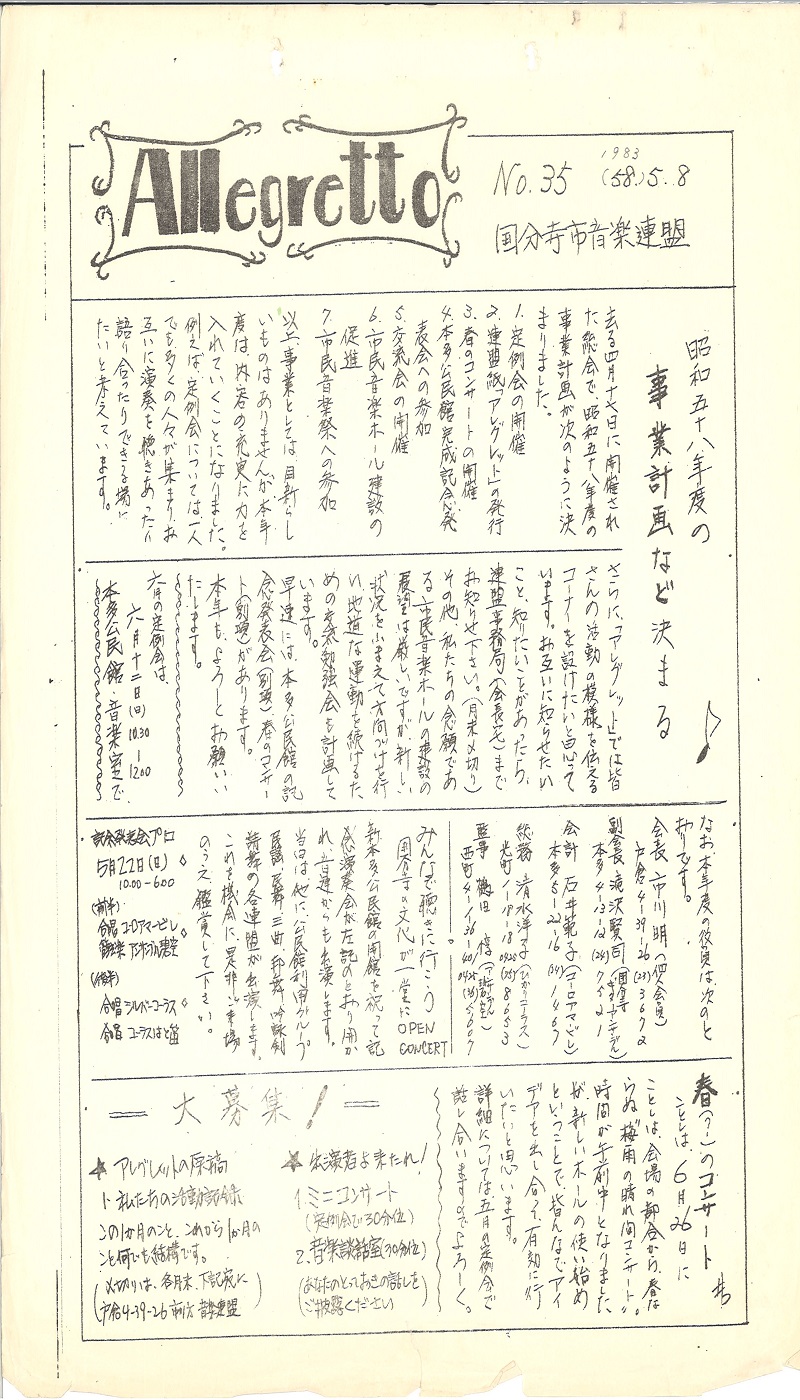 Allegretto
No.35
1983
(58.)5.8
国分寺市音楽連盟
昭和五十八年度の
事業計画など決まる
去る四月十七日に開催され
た総会で、昭和五十八年度の
事業計画が次のように決
まりました。
1.定例会の開催
2.連盟紙「アレグレット」の発行
3.春のコンサートの開催
4.本多公民館完成記念発
表会への参加
5.交流会の開催
6.市民音楽ホール建設の
促進
7.市民音楽祭への参加
以上、事業としては、目新らし
いものはありませんが、本年
度は、内容の充実に力を
入れていくことになりました。
例えば、定例会については一人
でも多くの人々が集まり、お
互いに演奏を聴きあったり
語り合ったりできる場に
たいと考えています。
さらに、「アレグレット」では皆
さんの活動の模様を伝える
コーナーを設けたいと思って
います。お互いに知らせたい
こと、知りたいことがあったら、
連盟事務局(会長宅)まで
お知らせ下さい。(月末〆切り)
その他、私たちの念願であ
る市民音楽ホールの建設の
展望は厳しいですが、新しい
状況をふまえて方向づけを行
い地道な運動を続けるた
めの交流勉強会も計画して
います。
早速には、本多公民館の記
念発表会(別項)春のコンサー
ト(別項)があります。
本年も、よろしくお願いい
たします。
六月の定例会は、
六月十二日(日)10.30-12.00
本多公民館・音楽室で
なお、本年度の役員は次のと
おりです。
会長 市川 明(個人会員)
戸倉4-39-26 (23)3672
副会長 滝沢賢司
本多4-13-12 (24)7521
会計 石井菊子(コーロアマービレ)
本多5-22-16 (21)1467
総務 清水洋子(ひかりコーラス)
光町1-18-18 0425(75)8653
監事 鶴田 惇
西町4-1-36-404
みんなで聴きに行こう
国分寺の文化が一堂に
OPEN
CONCERT
新本多公民館の開館を祝って記
念演奏会が左記のとおり開か
れ、音連からも出演します。
当日は、他に、公民館利用グループ
民謡、民舞、三曲、邦舞、吟詠剣
詩舞の各連盟が出演します。
これを機会に、是非ご来場
のうえ鑑賞して下さい。
記念発表会プロ
5月22日(日)
10.00-6.00
(前半)
合唱 コーロアマービレ
(後半)
合唱 シルバーコーラス
合唱 コーラスはと笛
春(?)のコンサート
ことしは、6月26日に
ことしは、会場の都合から、春な
らぬ“梅雨の晴れ間コンサート”。
時間が午前中となりました
が新しいホールの使い始め
ということで、皆んなでアイ
デアを出し合って、有効に行
いたいと思います。
詳細については、五月の定例会で
話し合いますのでよろしく。
=大募集!=
★出演者よ来たれ!
1.ミニコンサート
(定例会で30分位)
2.音楽談話室(30分位)
(あなたのとっておきの話しを
ご披露ください)
★アレグレットの原稿
1.私たちの活動記録
この1か月のこと、これから1か月の
こと何でも結構です。
(〆切りは、各月末、下記宛に
戸倉4-39-26 市川方 音楽連盟)